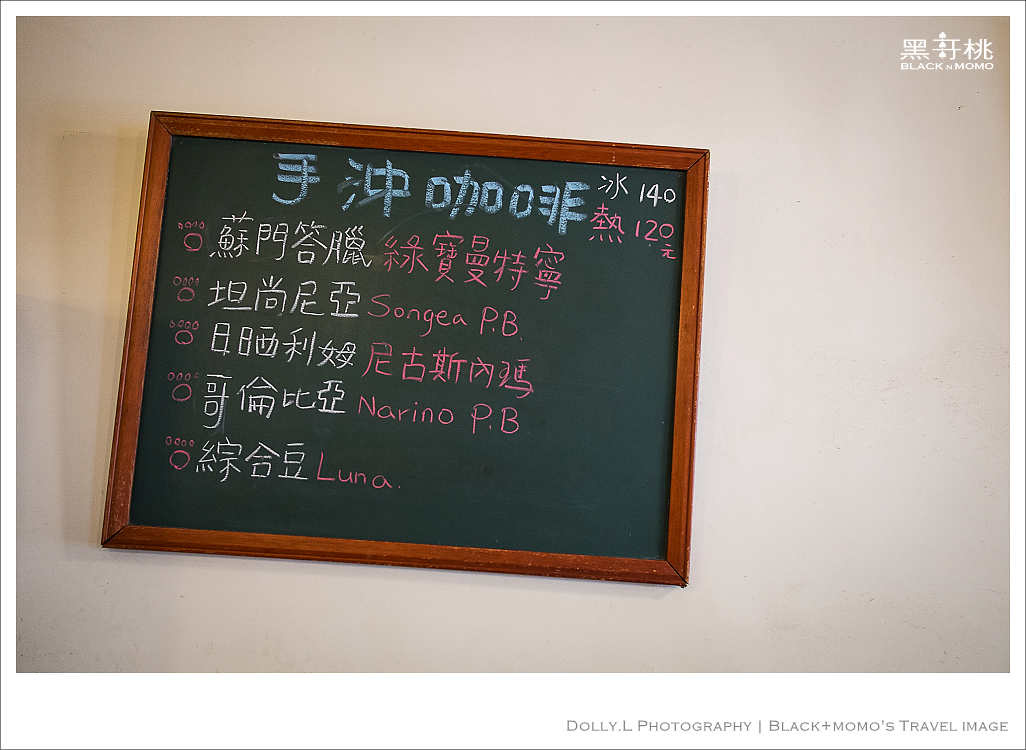 黑哥桃
BLACK N MOMO
手沖咖啡 冰 140
熱 120元
蘇門答臘 綠寶曼特寧
坦尚尼亞 Songea P.B.
日晒利姆 尼古斯內瑪
哥倫比亞 Narino P.B
綜合豆 Luna.
DOLLY.L PHOTOGRAPHY | BLACK+MOMO'S TRAVEL IMAGE